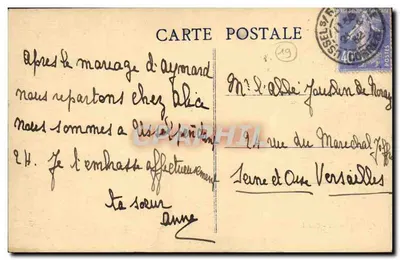 CARTE POSTALE
19
Après le mariage d'Aymard
nous repartons chez Alice
nous sommes a
2 H. Je t'embrasse affectueusement
ta sœur
Anne
Mr l'abbé de
rue du Marechal Joffre
Seine et Oise Versailles